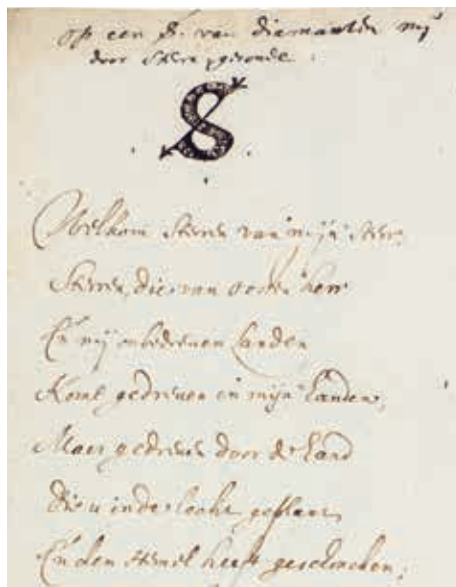 op een S. van diamanten mij
door Sterre gesonde.
S
Welkom Sterren van mijn Ster,
Sterren, die van oosten herr
En mij onbedreven Landen
Komt gedreven in mijn handen,
Maer gedreven door de hand
Die u inder
En den Hemel heeft